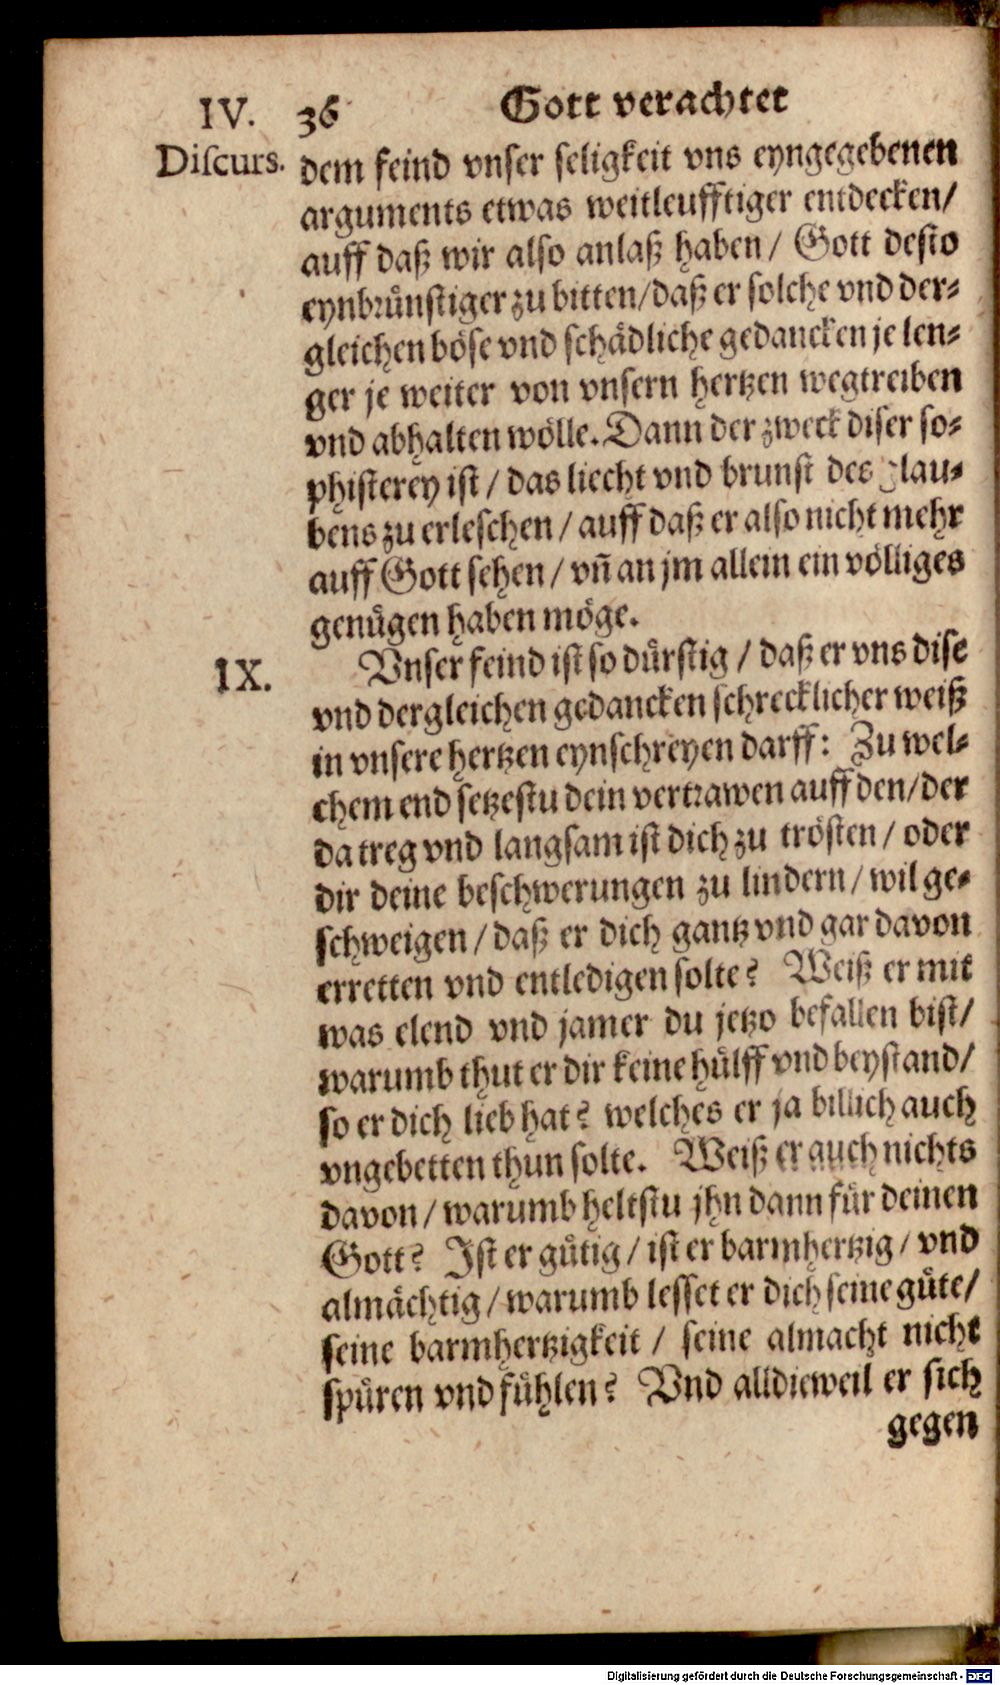 IV. 36 Gott verachtet
Discurs. dem feind vnser seligkeit vns eyngegebenen
arguments etwas weitleufftiger entdecken/
auff daß wir also anlaß haben/ Gott desto
eynbrůnstiger zu bitten/daß er solche vnd der⸗
gleichen bőse vnd schädliche gedancken je len⸗
ger je weiter von vnsern hertzen wegtreiben
vnd abhalten wőlle. Dann der zweck diser so⸗
phisterey ist / das liecht vnd brunst des glau⸗
bens zu erleschen / auff daß er also nicht mehr
auff Gott sehen / vn̄ an jm allein ein vőlliges
genůgen haben mőge.
IX. Vnser feind ist so důrstig / daß er vns dise
vnd dergleichen gedancken schrecklicher weiß
in vnsere hertzen eynschreyen darff: Zu wel⸗
chem end setzestu dein vertrawen auff den/der
da treg vnd langsam ist dich zu trősten / oder
dir deine beschwerungen zu lindern / wil ge⸗
schweigen / daß er dich gantz vnd gar davon
erretten vnd entledigen solte? Weiß er mit
was elend vnd jamer du jetzo befallen bist/
warumb thut er dir keine hůlff vnd beystand/
so er dich lieb hat? welches er ja billich auch
vngebetten thun solte. Weiß er auch nichts
davon / warumb heltstu jhn dann fůr deinen
Gott? Ist er gůtig / ist er barmhertzig / vnd
almächtig / warumb lesset er dich seine gůte/
seine barmhertzigkeit / seine almacht nicht
spůren vnd fůhlen? Vnd alldieweil er sich
gegen
Digitalisierung gefördert durch die Deutsche Forschungsgemeinschaft - DFG